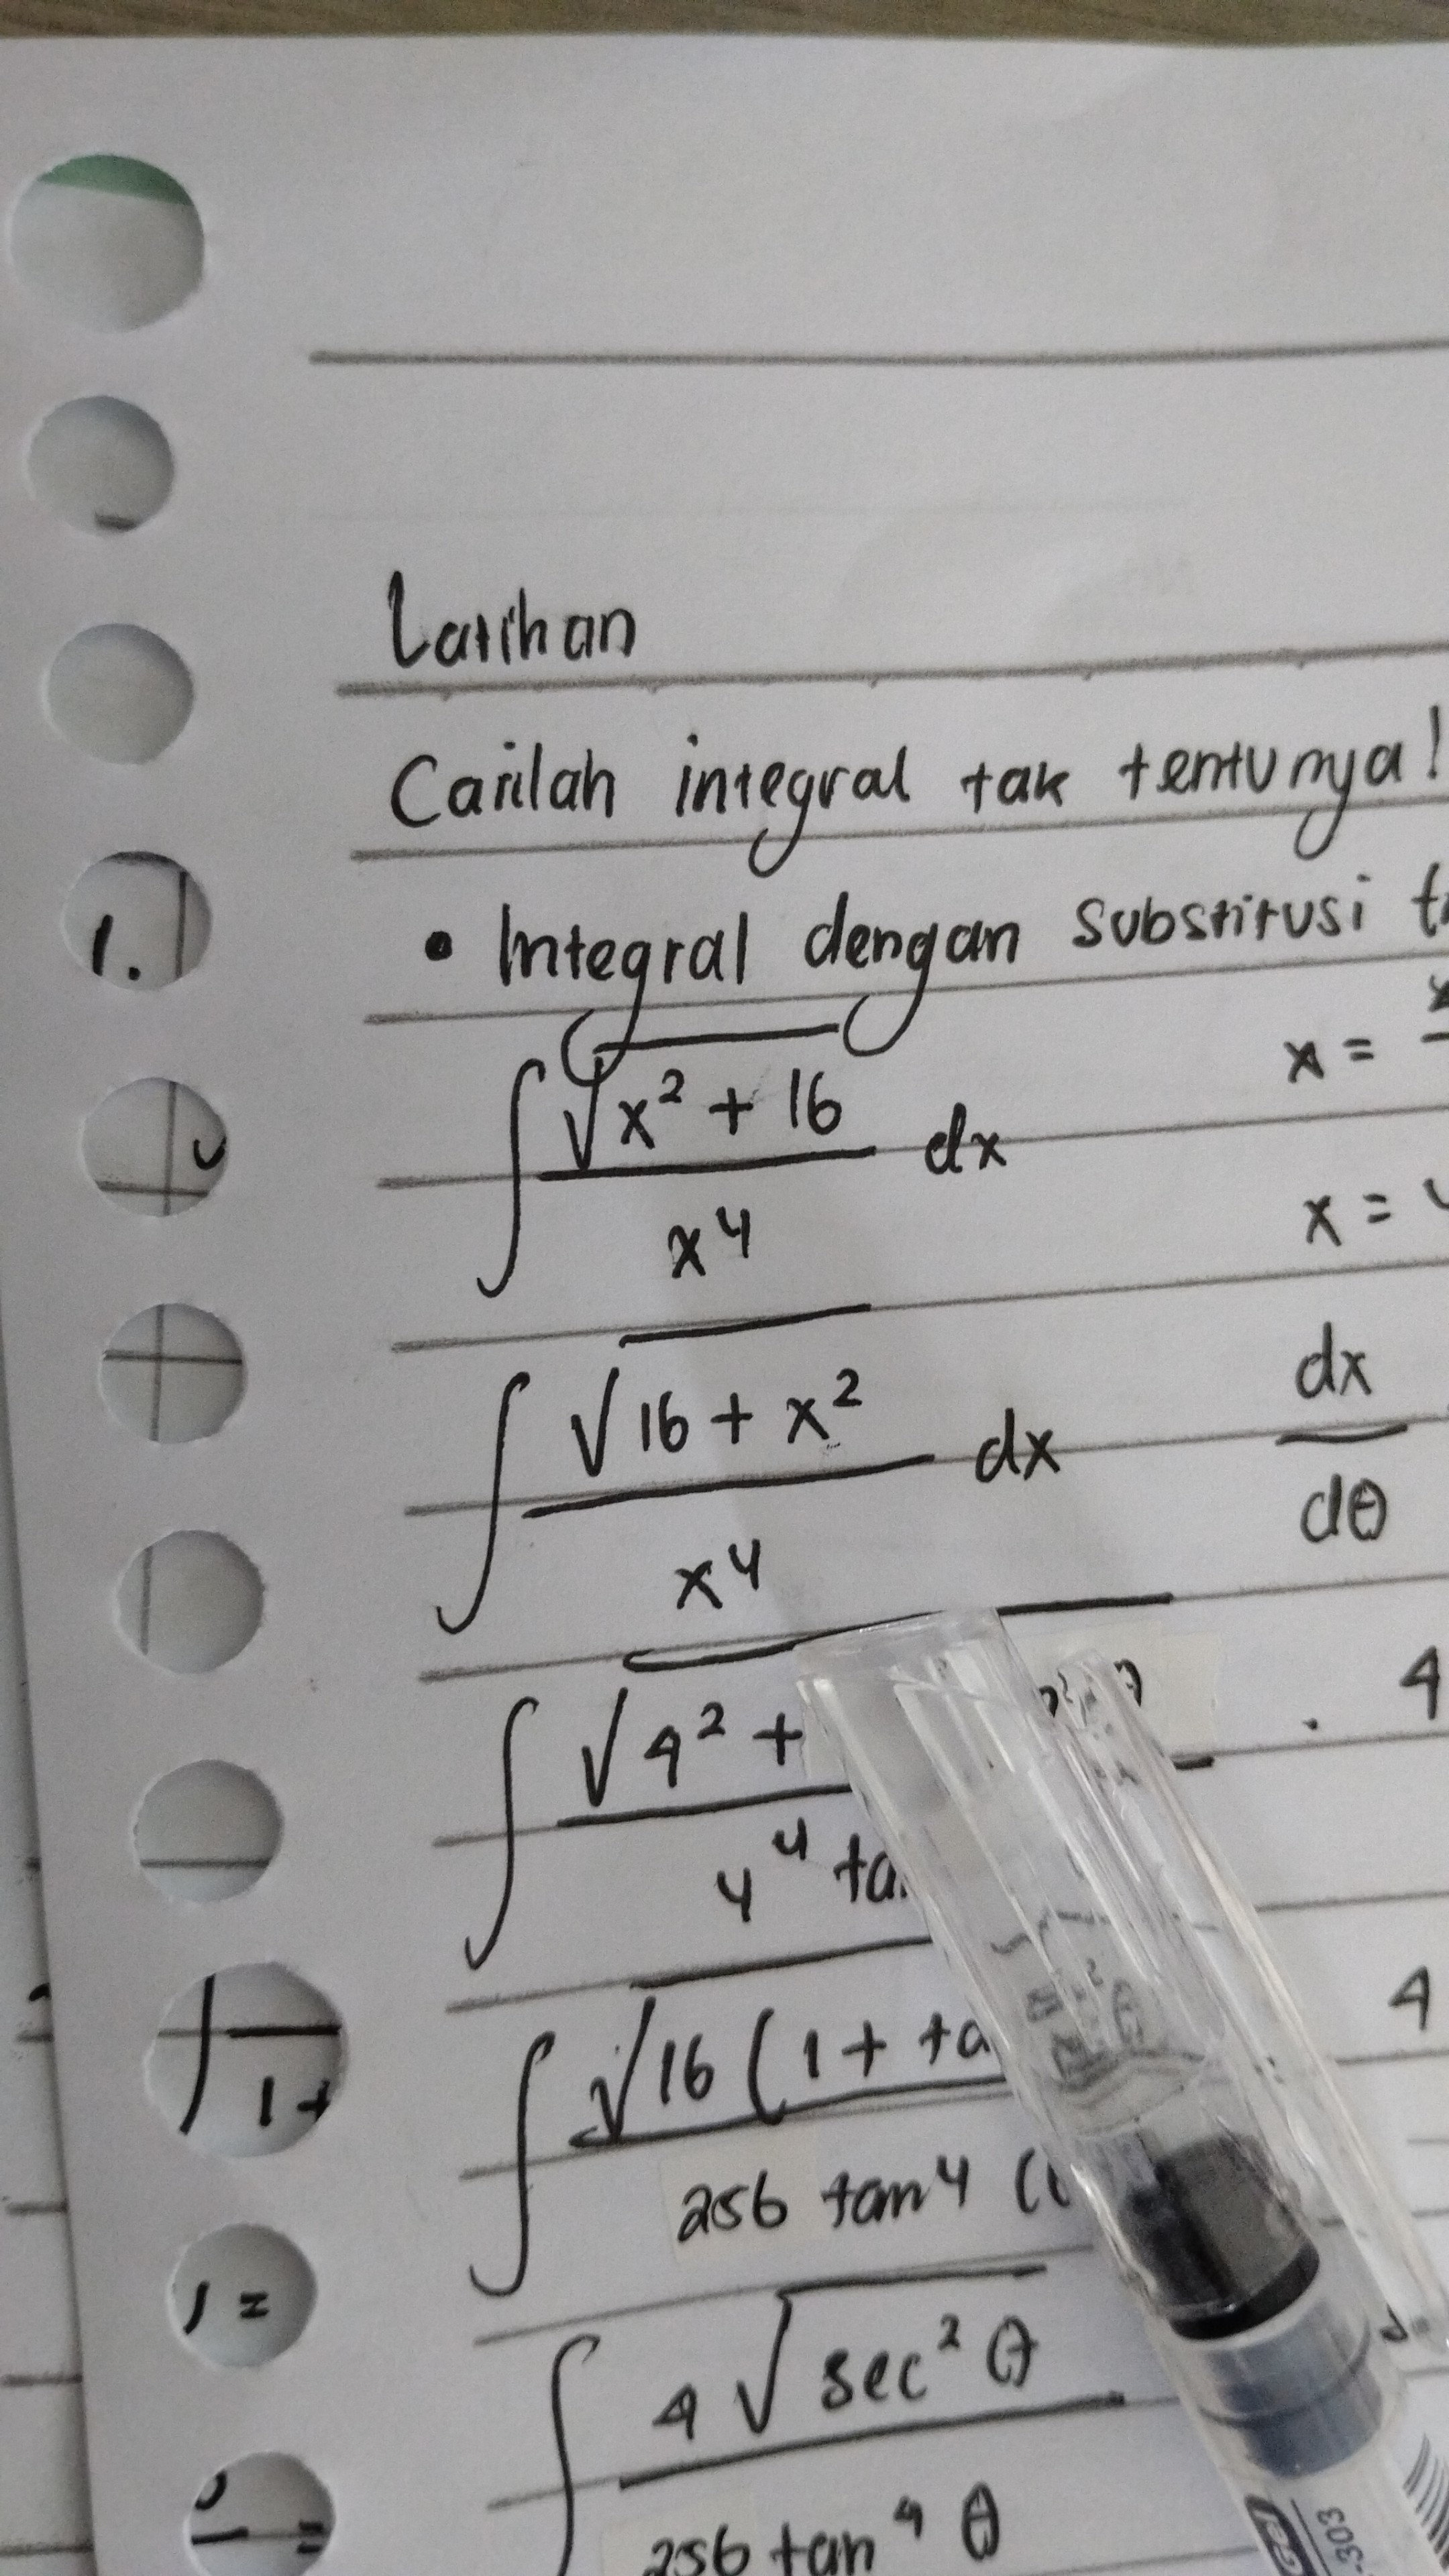 Latihan
Carilah integral tak tentunya!
• Integral dengan substitusi
∫ √(x² + 16) / x⁴ dx
x =
∫ √(16 + x²) / x⁴ dx
x =
dx / dθ
∫ √(4² + / 4⁴ . 4
∫ √16 (1 + / 256 tan⁴ 4
∫ 4 √sec² θ / 256 tan⁴ θ
1.
1+
=
303